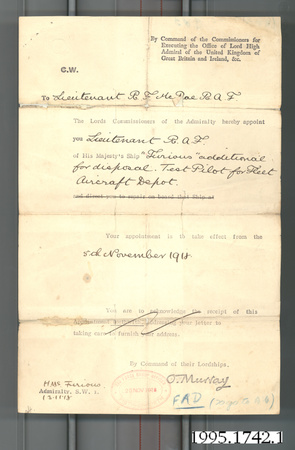 By Command of the Commissioners for
Executing the Office of Lord High
Admiral of the United Kingdom of
Great Britain and Ireland, &c.
C.W.
To Lieutenant R. F. McRae R.A.F
The Lords Commissioners of the Admiralty hereby appoint
you Lieutenant R.A.F.
of His Majesty's Ship "Furious" additional
for disposal. Test Pilot for Fleet
Aircraft Depot.
and direct you to repair on board that Ship at
Your appointment is to take effect from the
5th November 1918
You are to acknowledge the receipt of this
your letter to
taking care to furnish your address.
By Command of their Lordships,
O. Murray
HMS Furious.
Admiralty, S.W. 1.
13-11-18
FAD
1995.1742.1